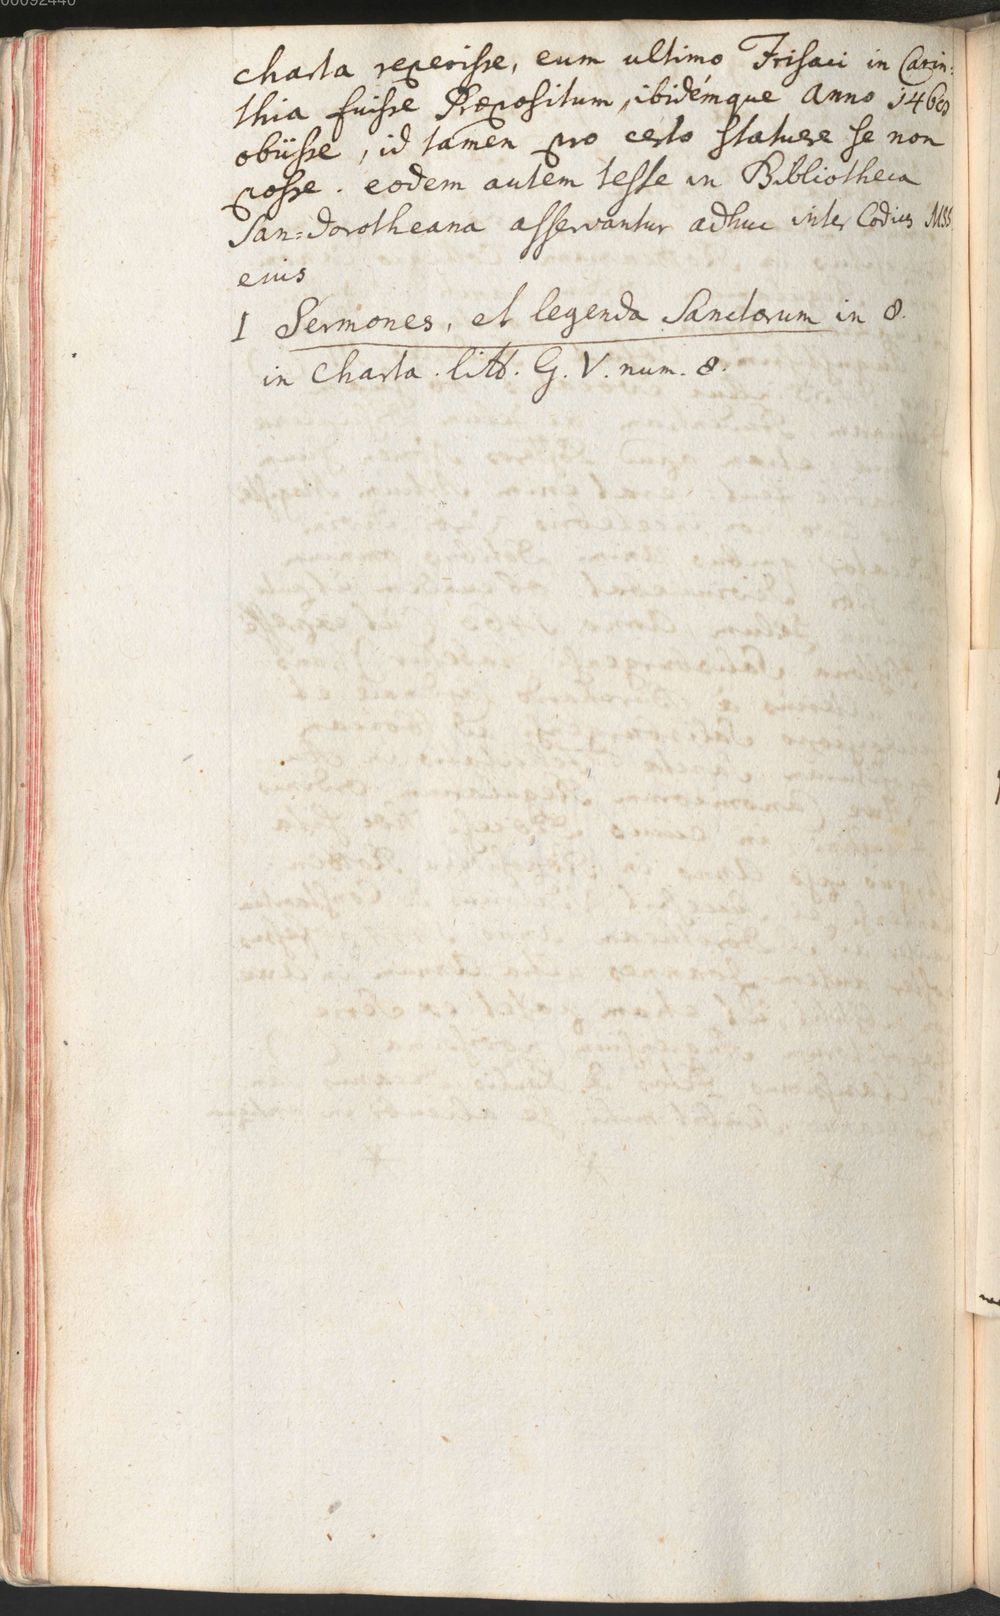 charta reperisse, eum ultimo Frisaci in Carin=
thia fuisse Præpositum, ibidémque Anno 1460
obiisse, id tamen pro certo statuere se non
posse. eodem autem teste in Bibliotheca
San=Dorotheana asservantur adhuc inter Codices MSS.
eius
1 Sermones, et legenda Sanctorum in 8.
in Charta. litt. G. V. num. 8.